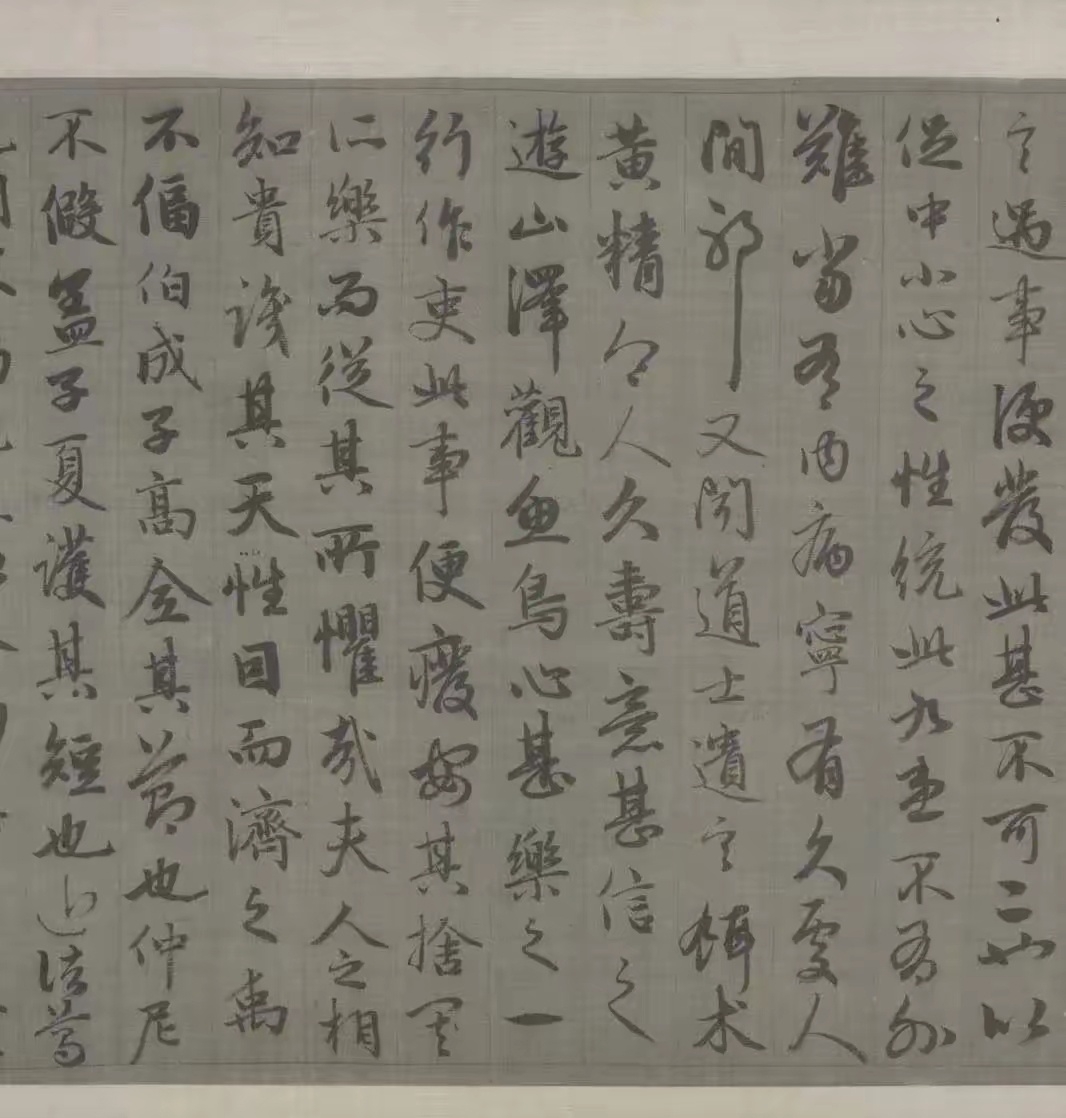 言遇事便發此甚不可二也以
促中小心之性統此九患不有外
難當有内病寧有久處人
間邪又聞道士遺言餌术
黃精令人久壽意甚信之
遊山澤觀魚鳥心甚樂之一
行作吏此事便癈安其捨其
所樂而從其所懼哉夫人之相
知貴識其天性因而濟之禹
不偪伯成子高全其節也仲尼
不假盖子夏護其短也近諸葛